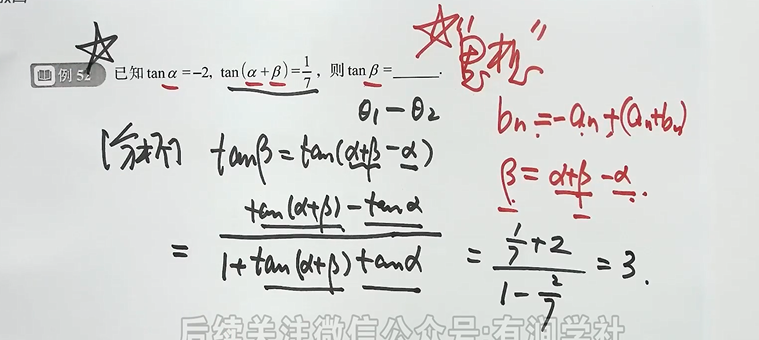 例 52 已知 tan α = -2, tan(α + β) = 1/7, 则 tan β = ______.
"思想"
θ₁ - θ₂
bn = -an + (an + bn)
[分析] tanβ = tan(α+β - α)
β = α+β - α.
= (tan(α+β) - tanα) / (1 + tan(α+β) tanα) = (1/7 + 2) / (1 - 2/7) = 3.
后续关注微信公众号:有涧学社